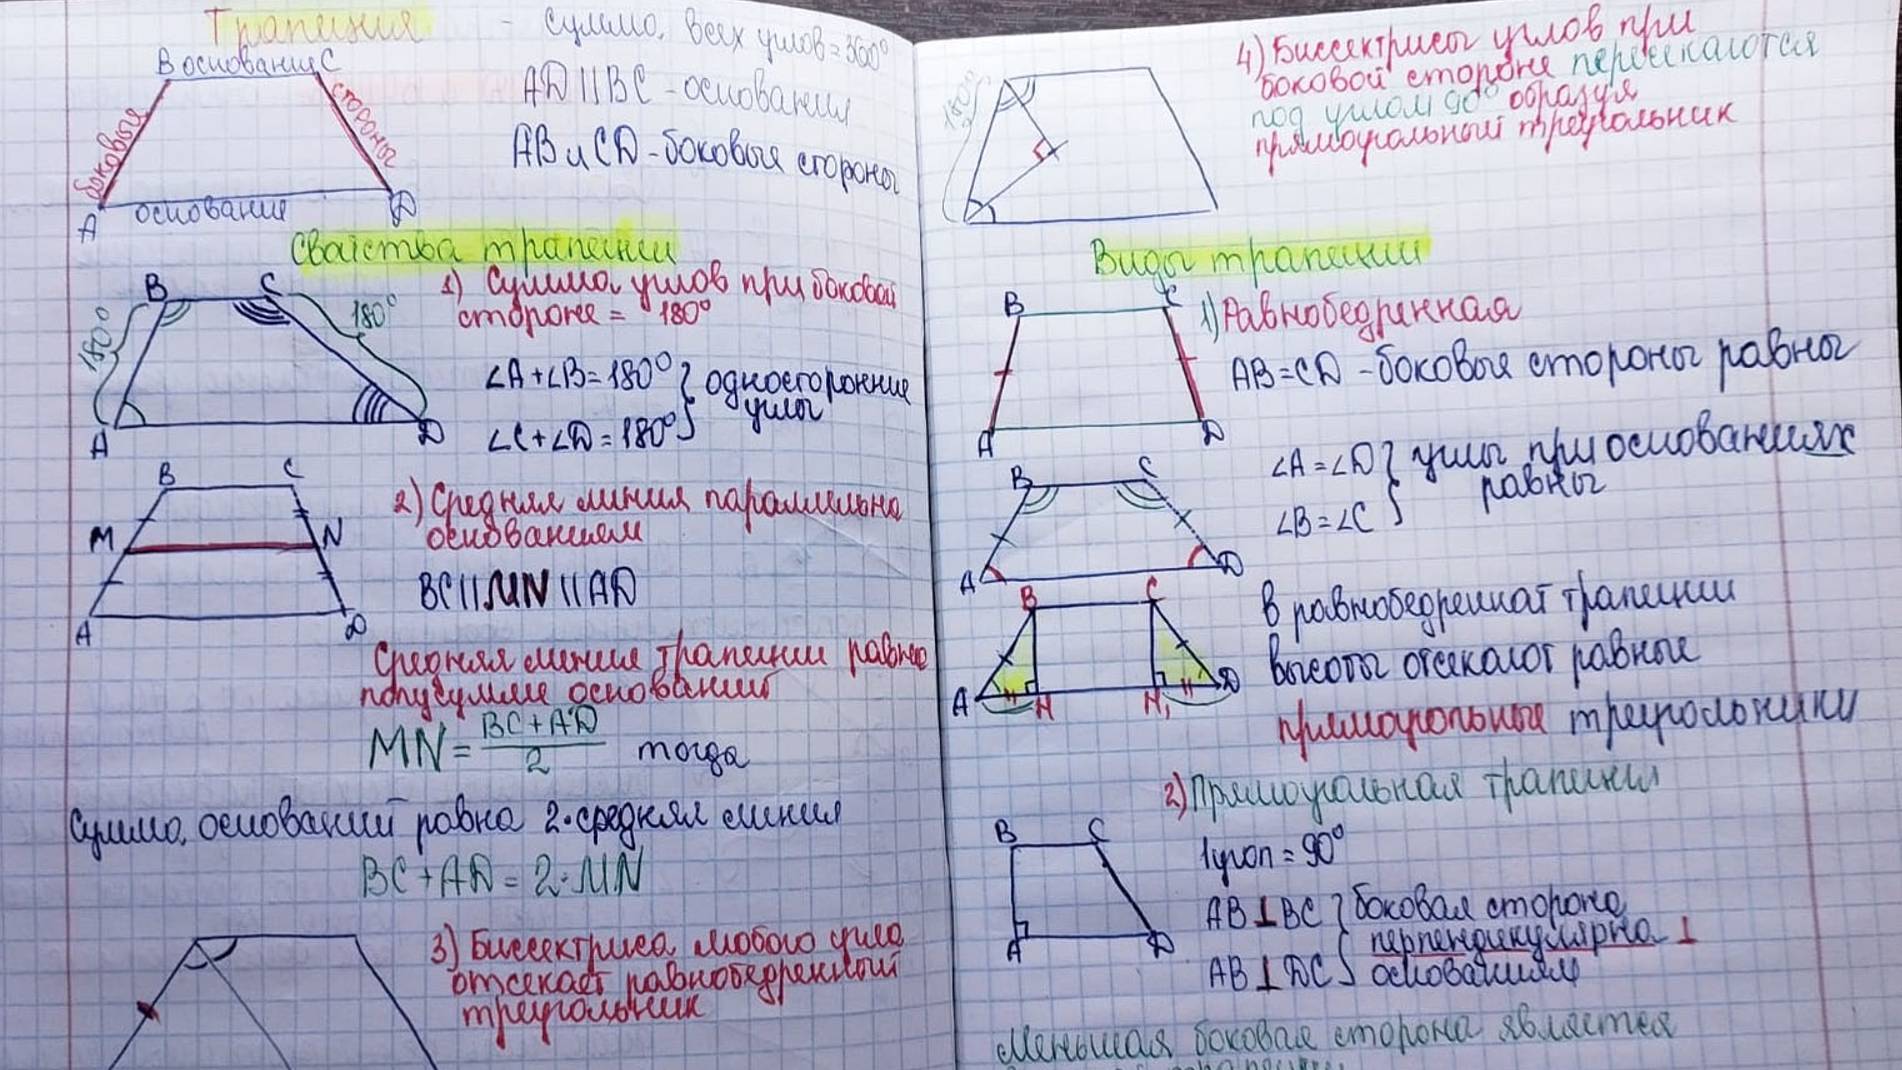 Трапеция
- Сумма всех углов = 360°
B основание C
AD || BC - основания
AB и CD - боковые стороны
боковые
стороны
A основание D
Свойства трапеции
B C
180°
180°
A D
1) Сумма углов при боковой
стороне = 180°
∠A+∠B=180° } односторонние
∠C+∠D=180° } углы
B C
M N
A D
2) Средняя линия параллельна
основаниям
BC || MN || AD
Средняя линия трапеции равна
полусумме оснований
MN = (BC + AD)/2 тогда
Сумма оснований равна 2·средняя линия
BC + AD = 2·MN
3) Биссектриса любого угла
отсекает равнобедренный
треугольник
180°
4) Биссектрисы углов при
боковой стороне пересекаются
под углом 90° образуя
прямоугольный треугольник
Виды трапеции
B C
A D
1) Равнобедренная
AB=CD - боковые стороны равны
B C
A D
∠A=∠D } углы при основаниях
∠B=∠C } равны
B C
A H H₁ D
в равнобедренной трапеции
высоты отсекают равные
прямоугольные треугольники
2) Прямоугольная трапеция
B C
A D
1 угол = 90°
AB ⊥ BC } боковая сторона
перпендикулярна ⊥
AB ⊥ DC } основаниям
Меньшая боковая сторона является